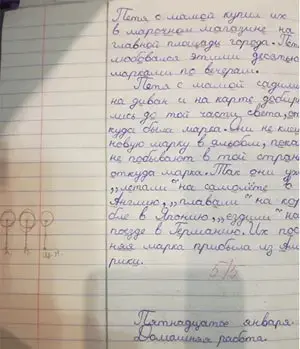 Петя с мамой купил их
в марочном магазине на
главной площади города. Петя
любовался этими десятью
марками по вечерам.
Петя с мамой садились
на диван и на карте добира-
лись до той части света, от-
куда была марка. Они не клеили
новую марку в альбом, пока
не побывают в той стране
откуда марка. Так они уже
„летали" на самолёте в
Англию, „плавали" на кораб-
бле в Японию, „ездили" на
поезде в Германию. Их послед-
няя марка прибыла из Аме-
рики.
5/5
Пятнадцатое января.
Домашняя работа.